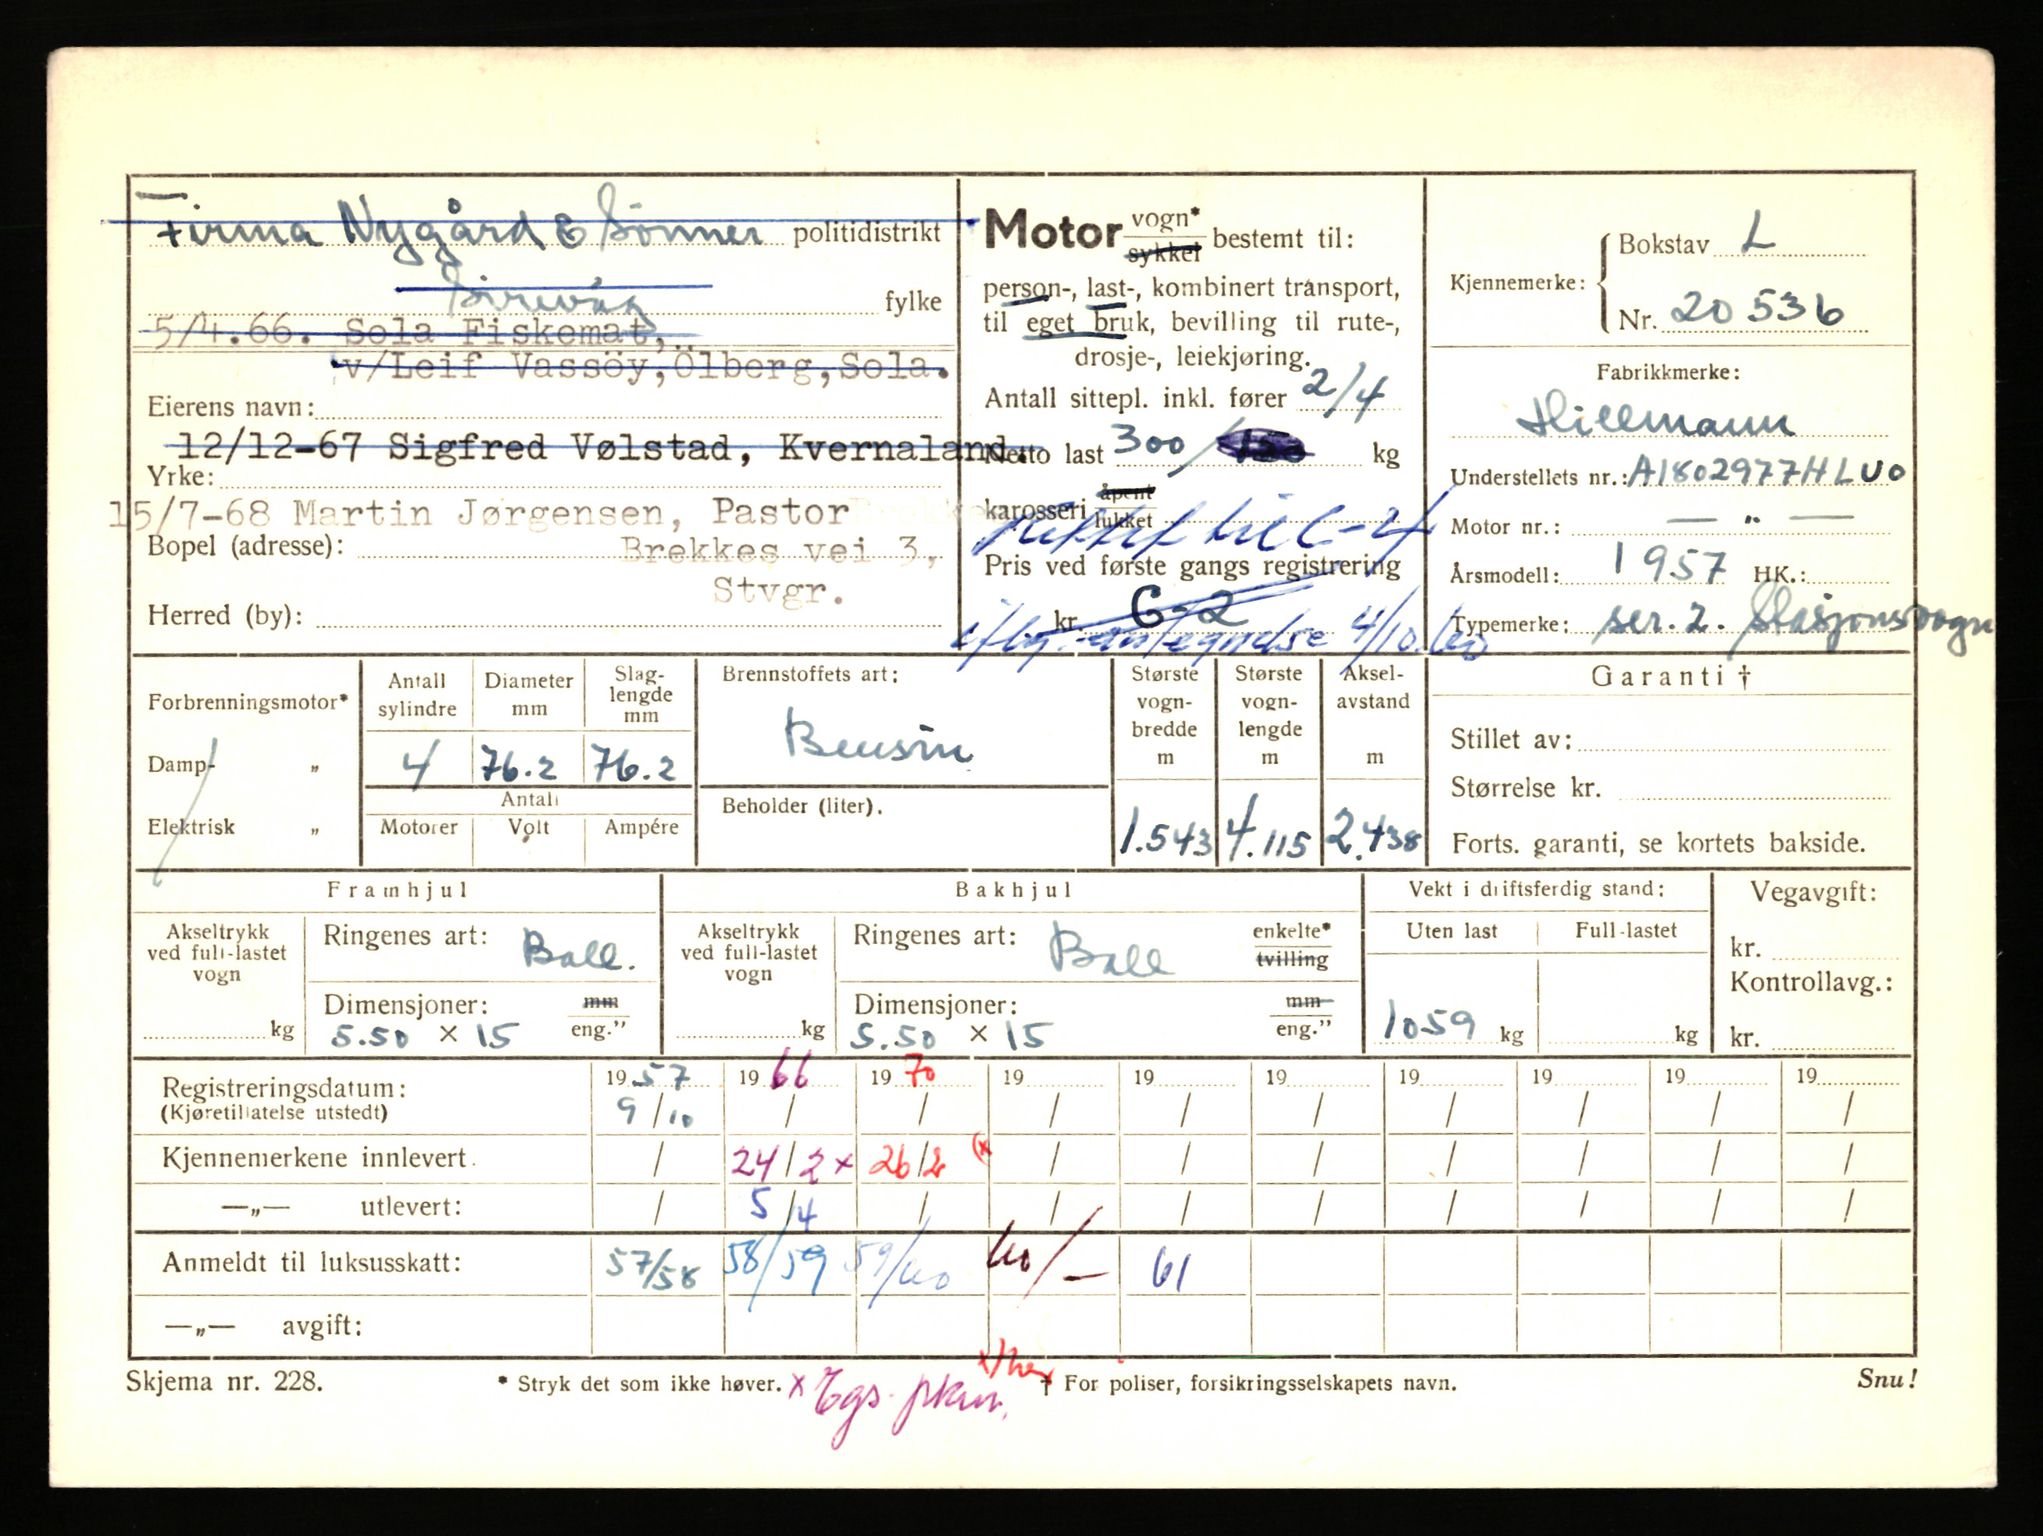 Firma Nygård & Sönner politidistrikt
Sirevåg fylke
5/4.66. Sola Fiskemat,
v/Leif Vassöy, Ölberg, Sola.
Eierens navn:
12/12-67 Sigfred Vølstad, Kvernaland.
Yrke:
15/7-68 Martin Jørgensen, Pastor
Bopel (adresse): Brekkes vei 3,
Stvgr.
Herred (by):
Motor vogn* sykkel bestemt til:
person-, last-, kombinert transport,
til eget bruk, bevilling til rute-,
drosje-, leiekjøring.
Antall sittepl. inkl. fører 2/4
Netto last 300/ kg
karosseri åpent lukket
rettet til C-4
Pris ved første gangs registrering
kr. C-2
iflg. antegnelse 4/10.60
Kjennemerke: Bokstav L
Nr. 20536
Fabrikkmerke:
Hillmann
Understellets nr.: A1802977HLUO
Motor nr.: — " —
Årsmodell: 1957 HK.:
Typemerke: ser. 2. Stasjonsvogn
Forbrenningsmotor*
Damp- "
Elektrisk "
Antall sylindre Diameter mm Slaglengde mm
4 76.2 76.2
Antall
Motorer Volt Ampére
Brennstoffets art:
Bensin
Beholder (liter).
Største vognbredde m Største vognlengde m Akselavstand m
1.543 4.115 2.438
Garanti †
Stillet av:
Størrelse kr.
Forts. garanti, se kortets bakside.
Framhjul
Akseltrykk ved full-lastet vogn
kg
Ringenes art: Ball.
Dimensjoner: mm eng."
5.50 × 15
Bakhjul
Akseltrykk ved full-lastet vogn
kg
Ringenes art: Ball enkelte* tvilling
Dimensjoner: mm eng."
5.50 × 15
Vekt i driftsferdig stand:
Uten last Full-lastet
1059 kg kg
Vegavgift:
kr.
Kontrollavg.:
kr.
Registreringsdatum: 1957 1966 1970 19 19 19 19 19 19 19
(Kjøretillatelse utstedt) 9/10 / / / / / / / / /
Kjennemerkene innlevert. / 24/2 x 26/2 (x / / / / / / /
—„— utlevert: / 5/4 / / / / / / / /
Anmeldt til luksusskatt: 57/58 58/59 59/60 60/— 61
—„— avgift:
Skjema nr. 228. * Stryk det som ikke høver. † For poliser, forsikringsselskapets navn. Snu!